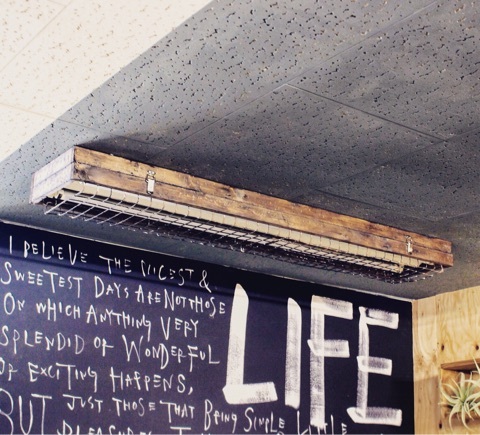 I BELIEVE THE NICEST &
SWEETEST DAYS ARE NOT THOSE
ON WHICH ANYTHING VERY
SPLENDID OF WONDERFUL
OF EXCITING HAPPENS,
BUT JUST THOSE THAT BEING SIMPLE LITTLE
PLEASURES
LIFE